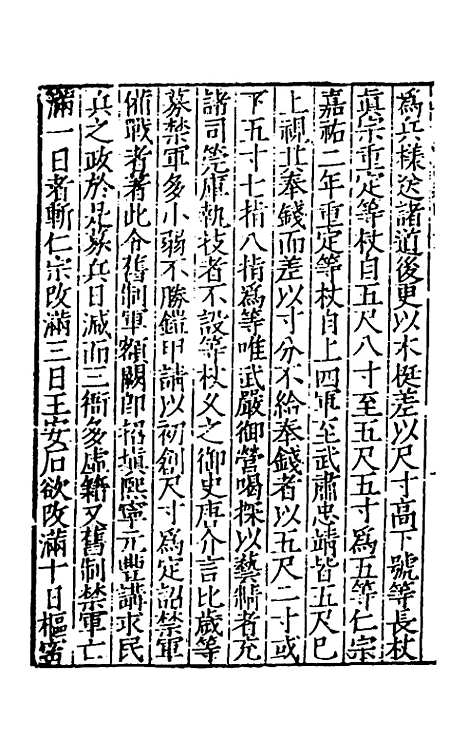 為兵樣送諸道後更以木梃差以尺寸高下號等長杖
真宗重定等杖自五尺八寸至五尺五寸為五等仁宗
嘉祐二年重定等杖自上四軍至武肅忠靖皆五尺已
上視其奉錢而差以寸分不給奉錢者以五尺二寸或
下五寸七指八指為等唯武嚴御營喝探以藝精者充
諸司筦庫執技者不設等杖久之御史唐介言比歲等
募禁軍多小弱不勝鎧甲請以初創尺寸為定詔禁軍
備戰者著此令舊制軍額闕即招填熙寧元豐講求民
兵之政於是募兵日減而三衙多虛籍又舊制禁軍亡
滿一日者斬仁宗改滿三日王安石欲改滿十日樞密